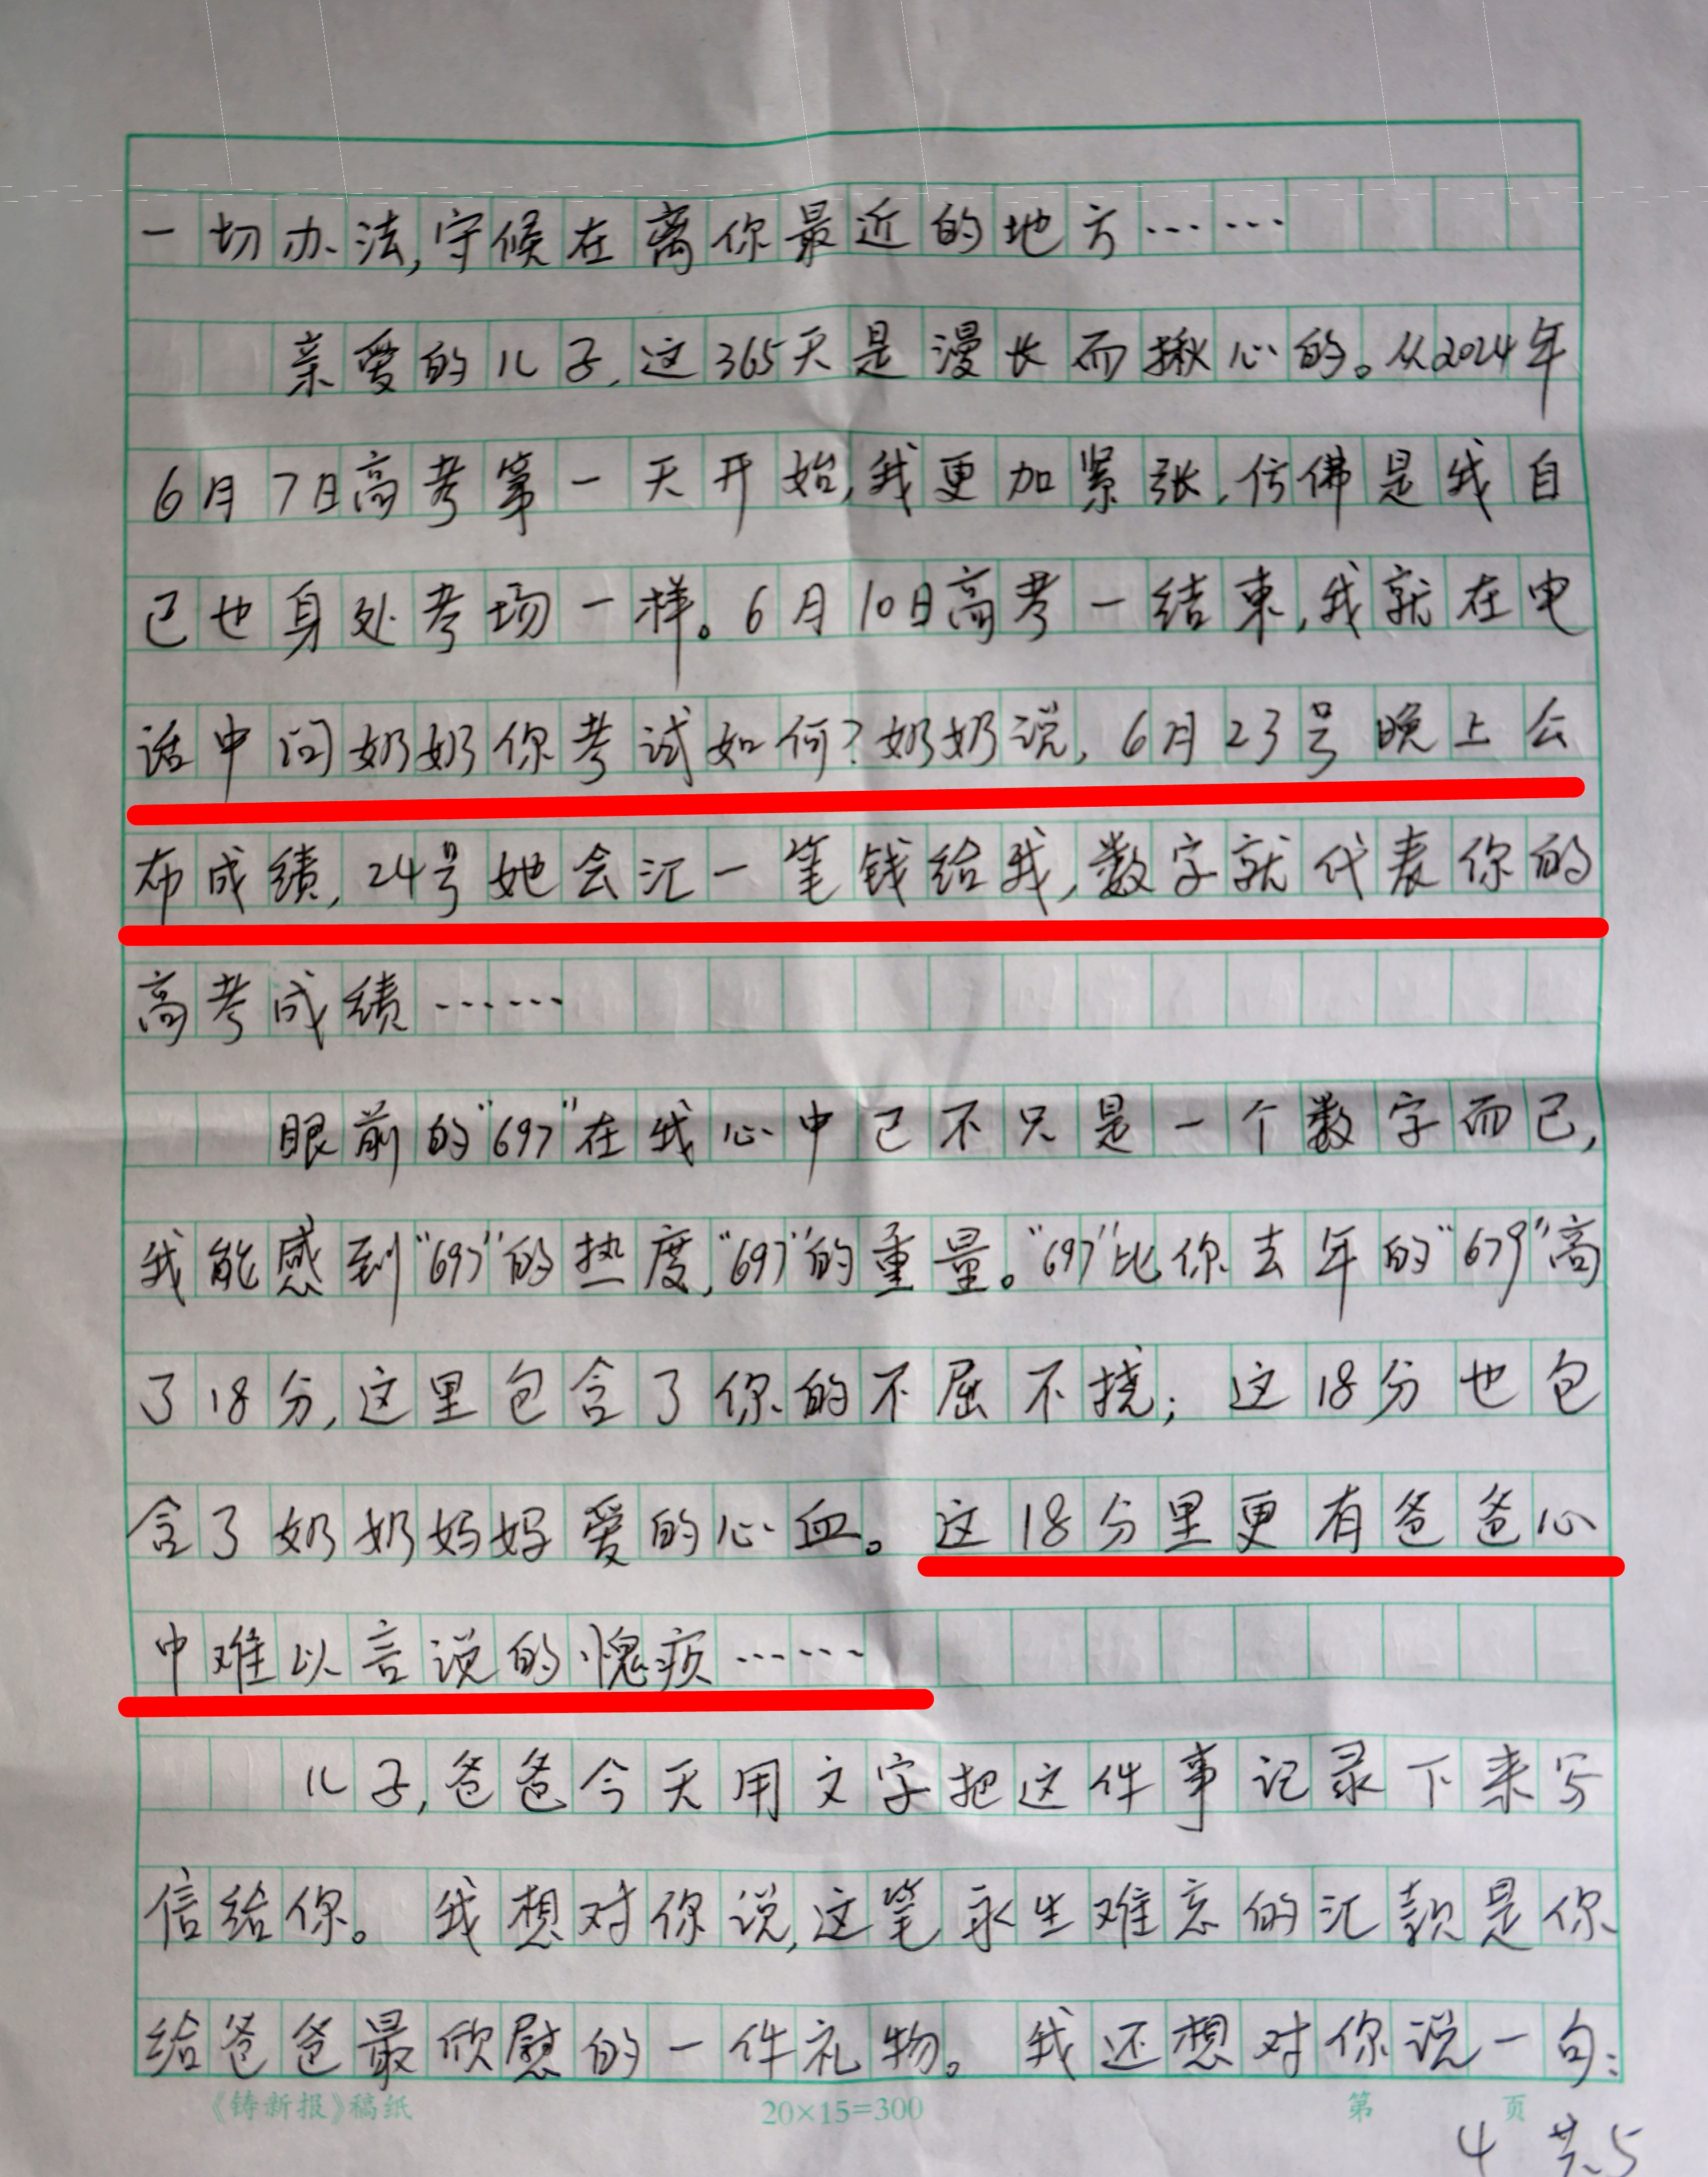 一切办法,守候在离你最近的地方……
亲爱的儿子,这365天是漫长而揪心的。从2024年
6月7日高考第一天开始,我更加紧张,仿佛是我自
己也身处考场一样。6月10日高考一结束,我就在电
话中问奶奶你考试如何?奶奶说,6月23号晚上公
布成绩,24号她会汇一笔钱给我,数字就代表你的
高考成绩……
眼前的"697"在我心中已不只是一个数字而已,
我能感到"697"的热度,"697"的重量。"697"比你去年的"679"高
了18分,这里包含了你的不屈不挠;这18分也包
含了奶奶妈妈爱的心血。这18分里更有爸爸心
中难以言说的愧疚……
儿子,爸爸今天用文字把这件事记录下来写
信给你。我想对你说,这笔永生难忘的汇款是你
给爸爸最欣慰的一件礼物。我还想对你说一句:
《铸新报》稿纸 20×15=300 第 页
4 共5